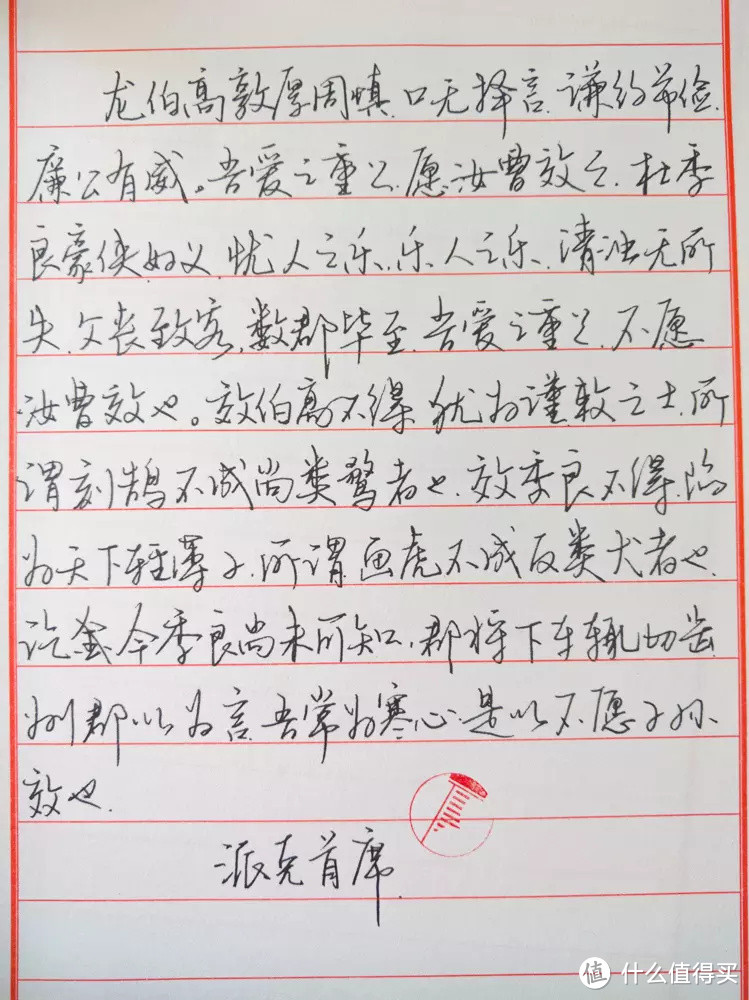 龙伯高敦厚周慎,口无择言,谦约节俭,
廉公有威。吾爱之重之,愿汝曹效之.杜季
良豪侠好义,忧人之乐,乐人之乐,清浊无所
失,父丧致客,数郡毕至,吾爱之重之,不愿
汝曹效也。效伯高不得,犹为谨敕之士,所
谓刻鹄不成尚类鹜者也.效季良不得,陷
为天下轻薄子,所谓画虎不成反类犬者也.
讫今季良尚未可知,郡将下车辄切齿
州郡以为言,吾常为寒心,是以不愿子孙
效也.
派克首席
值 什么值得买